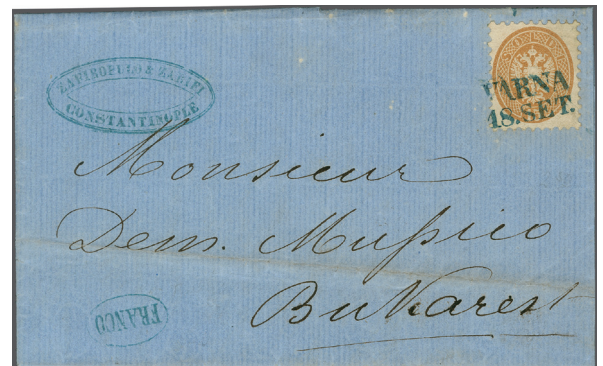 ZAFIROPULO & ZARIFI
CONSTANTINOPLE
VARNA
18. SET.
Monsieur
Dem. Mußico
Bukarest
FRANCO